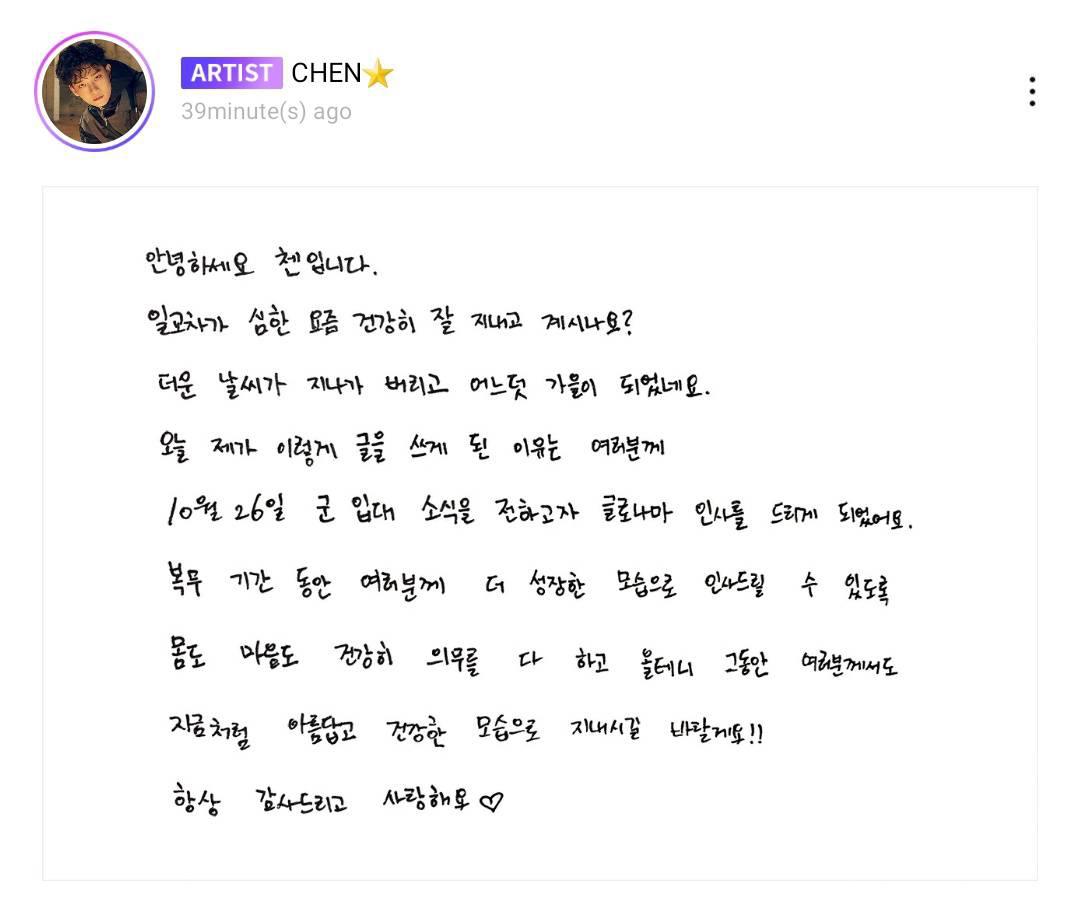 ARTIST CHEN⭐
39minute(s) ago
안녕하세요 첸입니다.
일교차가 심한 요즘 건강히 잘 지내고 계시나요?
더운 날씨가 지나가 버리고 어느덧 가을이 되었네요.
오늘 제가 이렇게 글을 쓰게 된 이유는 여러분께
10월 26일 군 입대 소식을 전하고자 글로나마 인사를 드리게 되었어요.
복무 기간 동안 여러분께 더 성장한 모습으로 인사드릴 수 있도록
몸도 마음도 건강히 의무를 다 하고 올테니 그동안 여러분께서도
지금처럼 아름답고 건강한 모습으로 지내시길 바랄게요!!
항상 감사드리고 사랑해요♡